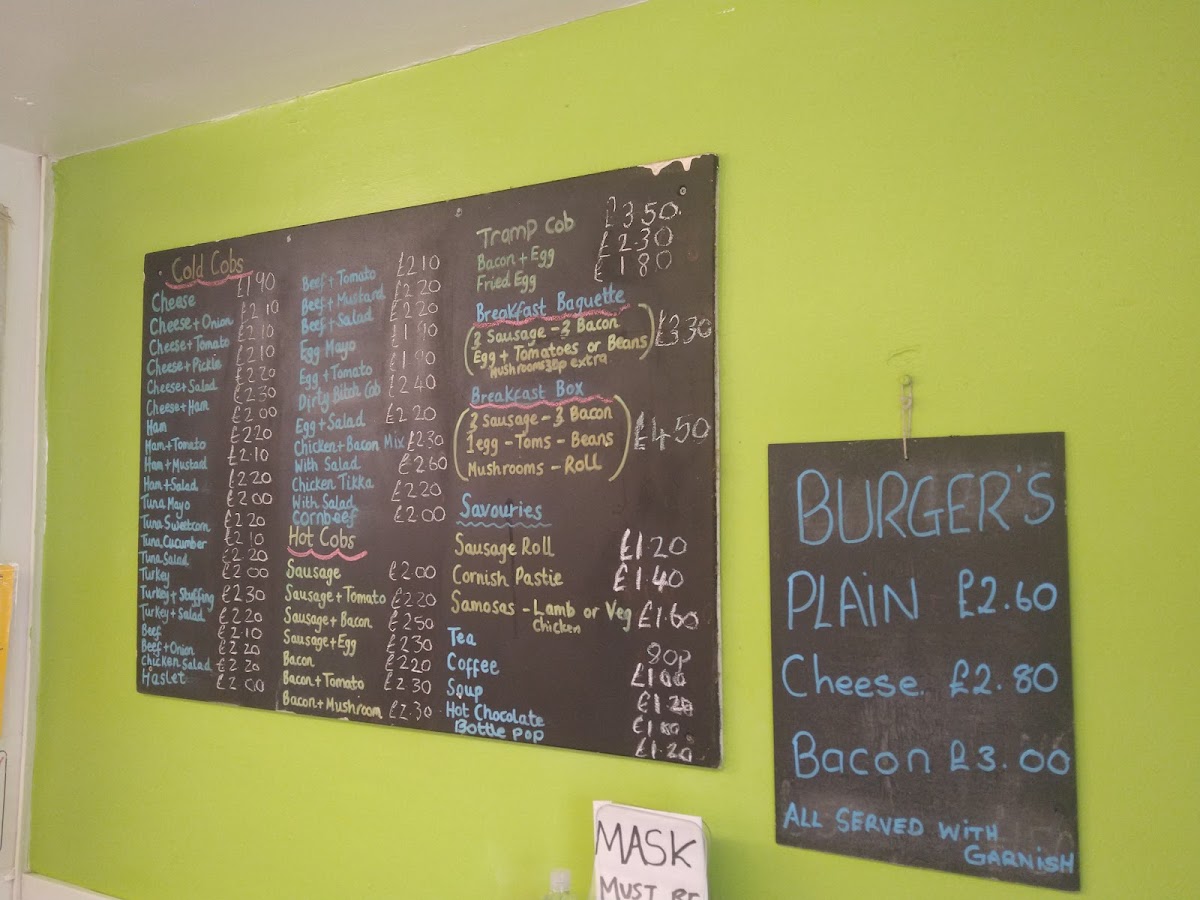 Cold Cobs
Cheese £1.90
Cheese + Onion £2.10
Cheese + Tomato £2.10
Cheese + Pickle £2.10
Cheese + Salad £2.20
Cheese + Ham £2.30
Ham £2.00
Ham + Tomato £2.20
Ham + Mustard £2.10
Ham + Salad £2.20
Tuna Mayo £2.00
Tuna Sweetcorn £2.20
Tuna Cucumber £2.10
Tuna Salad £2.20
Turkey £2.00
Turkey + Stuffing £2.30
Turkey + Salad £2.20
Beef £2.10
Beef + Onion £2.20
Chicken Salad £2.20
Haslet £2.00
Beef + Tomato £2.10
Beef + Mustard £2.20
Beef + Salad £2.20
Egg Mayo £1.90
Egg + Tomato £1.90
Dirty Bitch Cob £2.40
Egg + Salad £2.20
Chicken + Bacon Mix £2.30
With Salad £2.60
Chicken Tikka £2.20
With Salad
Cornbeef £2.00
Hot Cobs
Sausage £2.00
Sausage + Tomato £2.20
Sausage + Bacon £2.50
Sausage + Egg £2.30
Bacon £2.20
Bacon + Tomato £2.30
Bacon + Mushroom £2.30
Tramp Cob £3.50
Bacon + Egg £2.30
Fried Egg £1.80
Breakfast Baguette
Sausage - Bacon £3.30
Egg + Tomatoes or Beans
Mushrooms 30p extra
Breakfast Box
Sausage - Bacon
1 egg - Toms - Beans £4.50
Mushrooms - Roll
Savouries
Sausage Roll £1.20
Cornish Pastie £1.40
Samosas - Lamb or Veg £1.60
Chicken
Tea 90p
Coffee £1.00
Soup £1.20
Hot Chocolate £1.00
Bottle pop £1.20
BURGER'S
PLAIN £2.60
Cheese. £2.80
Bacon £3.00
ALL SERVED WITH
GARNISH
MASK
MUST BE